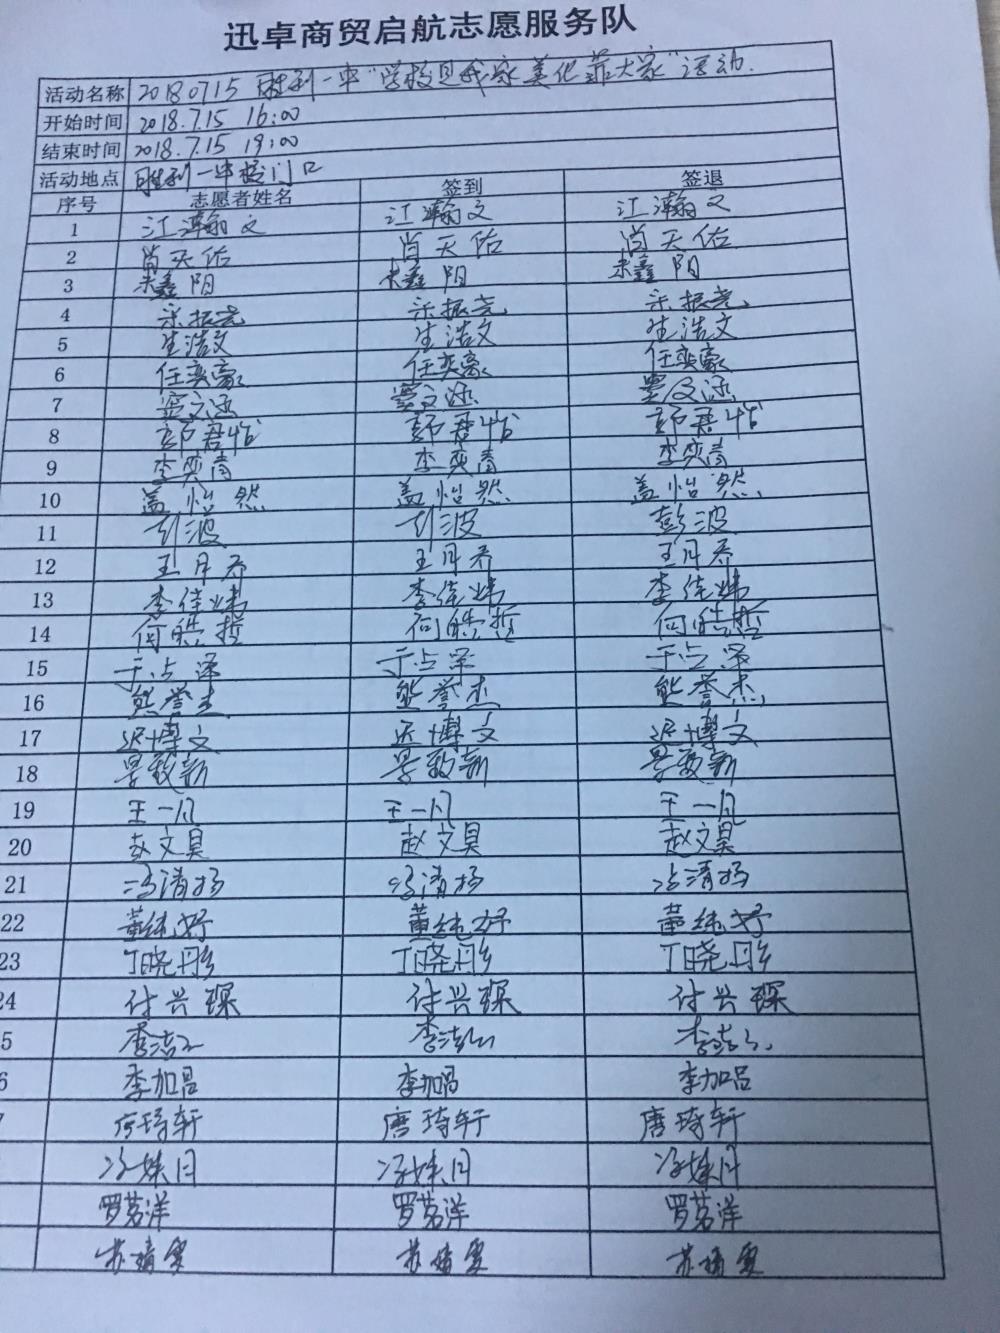 迅卓商贸启航志愿服务队
活动名称 20180715 胜利一中“学校是我家美化靠大家”活动.
开始时间 2018.7.15 16:00
结束时间 2018.7.15 19:00
活动地点 胜利一中校门口
序号 志愿者姓名 签到 签退
1 江瀚文 江瀚文 江瀚文
2 肖天佑 肖天佑 肖天佑
3 朱鑫阳 朱鑫阳 朱鑫阳
4 宋振尧 宋振尧 宋振尧
5 生浩文 生浩文 生浩文
6 任奕豪 任奕豪 任奕豪
7 窦文涵 窦文涵 窦文涵
8 郭君怡 郭君怡 郭君怡
9 李奕青 李奕青 李奕青
10 盖怡然 盖怡然 盖怡然
11 彭波 彭波 彭波
12 王月乔 王月乔 王月乔
13 李佳炜 李佳炜 李佳炜
14 何皓哲 何皓哲 何皓哲
15 于占泽 于占泽 于占泽
16 熊誉杰 熊誉杰 熊誉杰
17 迟博文 迟博文 迟博文
18 景致新 景致新 景致新
19 王一凡 王一凡 王一凡
20 赵文昊 赵文昊 赵文昊
21 冯清扬 冯清扬 冯清扬
22 董纯妤 董纯妤 董纯妤
23 丁晓彤 丁晓彤 丁晓彤
24 付兴琛 付兴琛 付兴琛
5 李洁
6 李加昌 李加昌 李加吕
7 唐琦轩 唐琦轩 唐琦轩
冯姝月 冯姝月 冯姝月
罗茗洋 罗茗洋 罗茗洋
苏靖雯 苏靖雯 苏靖雯